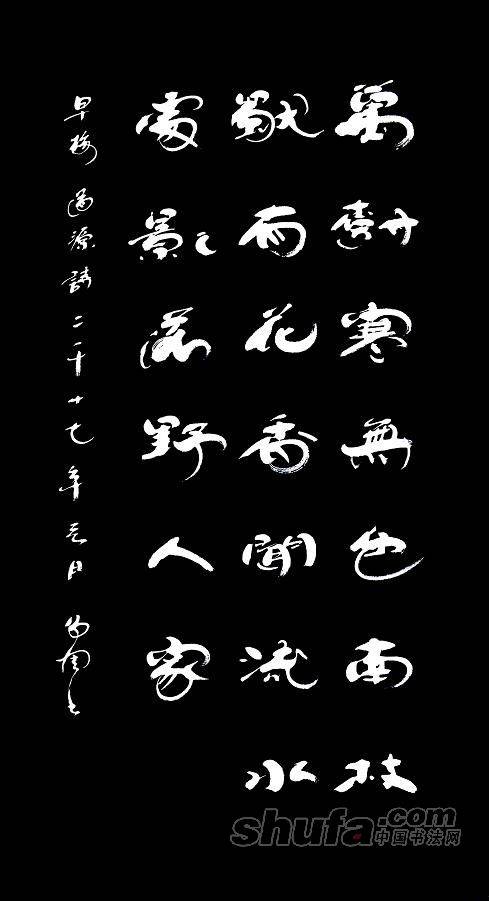 萬樹寒無色南枝
獨有花香聞流水
處影落野人家
早梅 道源詩 二千十七年元月
shufa.com
中国书法网